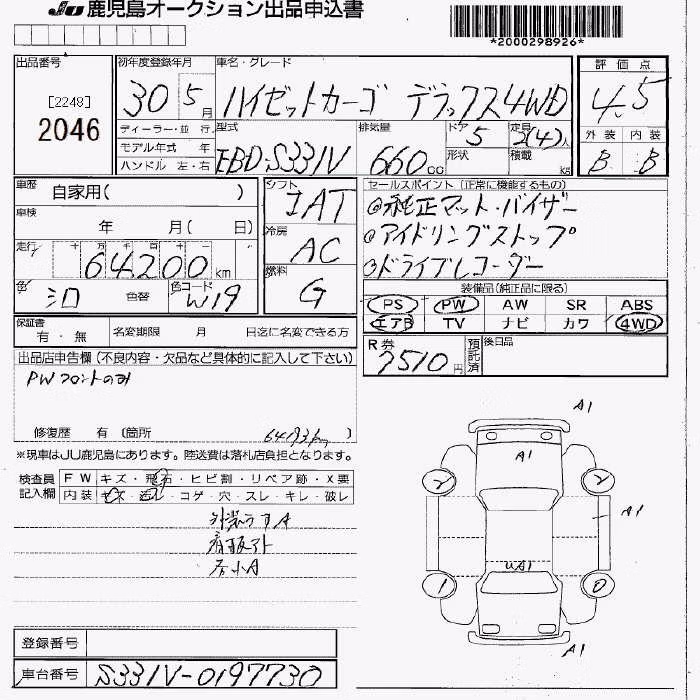 JU 鹿児島オークション出品申込書
*2000298926*
出品番号
[2248]
2046
初年度登録年月
30 5月
車名・グレード
ハイゼットカーゴ デラックス4WD
評価点
4.5
外装 内装
B B
ディーラー・並行
モデル年式 年
ハンドル 左・右
型式
EBD-S331V
排気量
660cc
ドア
5
形状
定員
2(4)人
積載
kg
車歴
自家用( )
車検
年 月( 日)
走行
十万千百十一
64200km
色
シロ
色替
色コード
W19
シフト
IAT
冷房
AC
燃料
G
セールスポイント (正常に機能するもの)
◎純正マット・バイザー
◎アイドリングストップ
◎ドライブレコーダー
装備品(純正品に限る)
PS PW AW SR ABS
エアB TV ナビ カワ 4WD
保証書
有・無
名変期限 月 日迄に名変できる方
R券
7510円
預託済
後日品
出品店申告欄(不良内容・欠品など具体的に記入して下さい)
PWフロントのみ
修復歴 有 〔箇所 〕
※現車はJU鹿児島にあります。陸送費は落札店負担となります。
検査員記入欄
FW キズ・飛石・ヒビ割・リペア跡・X要
内装 キズ・汚レ・コゲ・穴・スレ・キレ・破レ
A1
A1
2 2
A1
UA1
1 0
A1
登録番号
車台番号 S331V-0197730